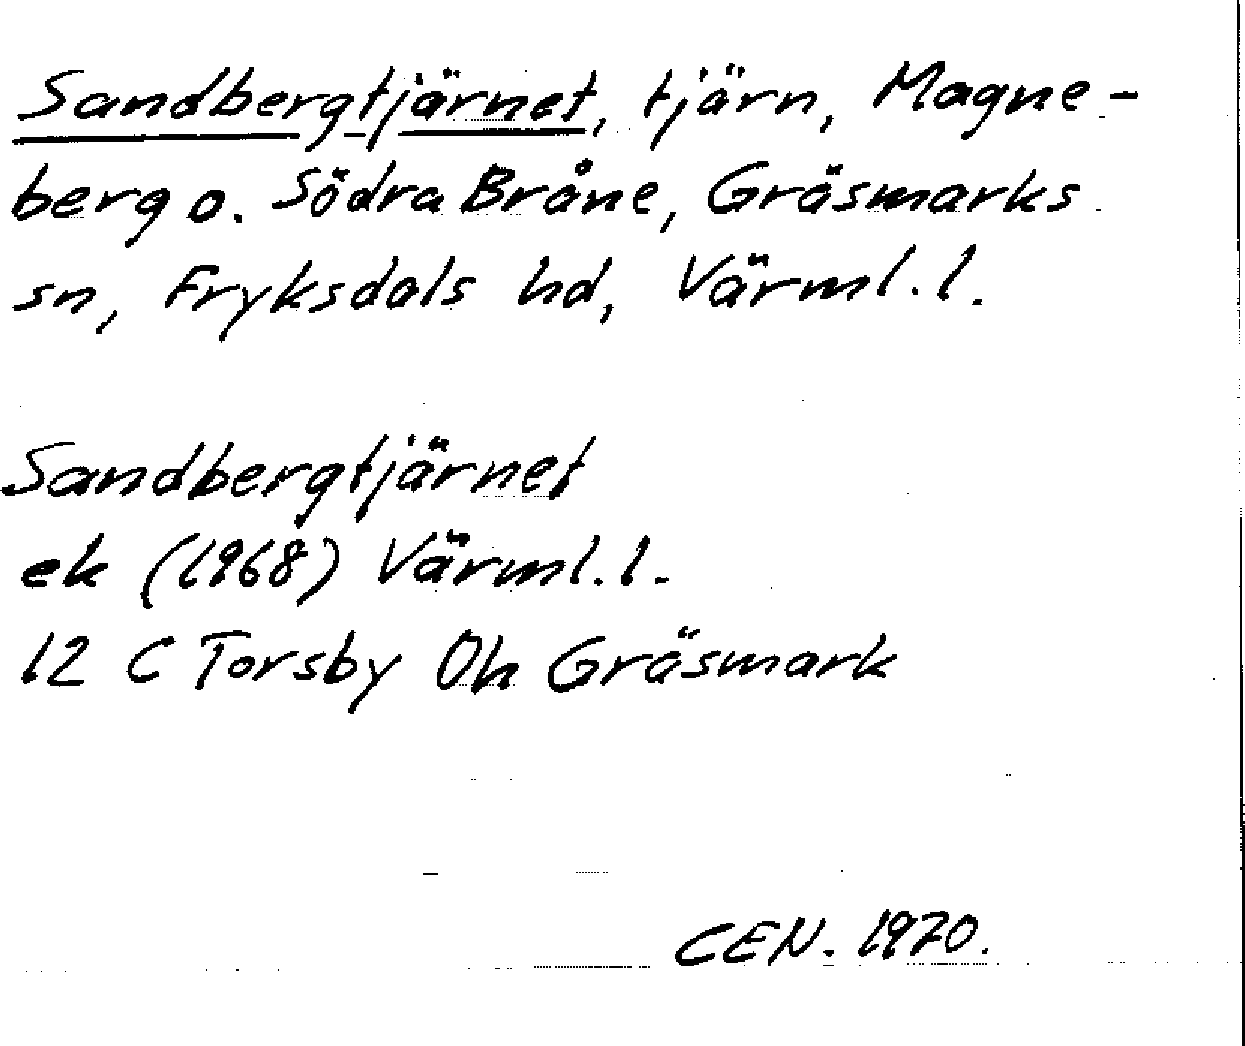 Sandbergtjärnet, tjärn, Magne-
berg o. Södra Bråne, Gräsmarks
sn, Fryksdals hd, Värml. l.
Sandbergtjärnet
ek (1968) Värml. l.
12 C Torsby 0h Gräsmark
CEN. 1970.